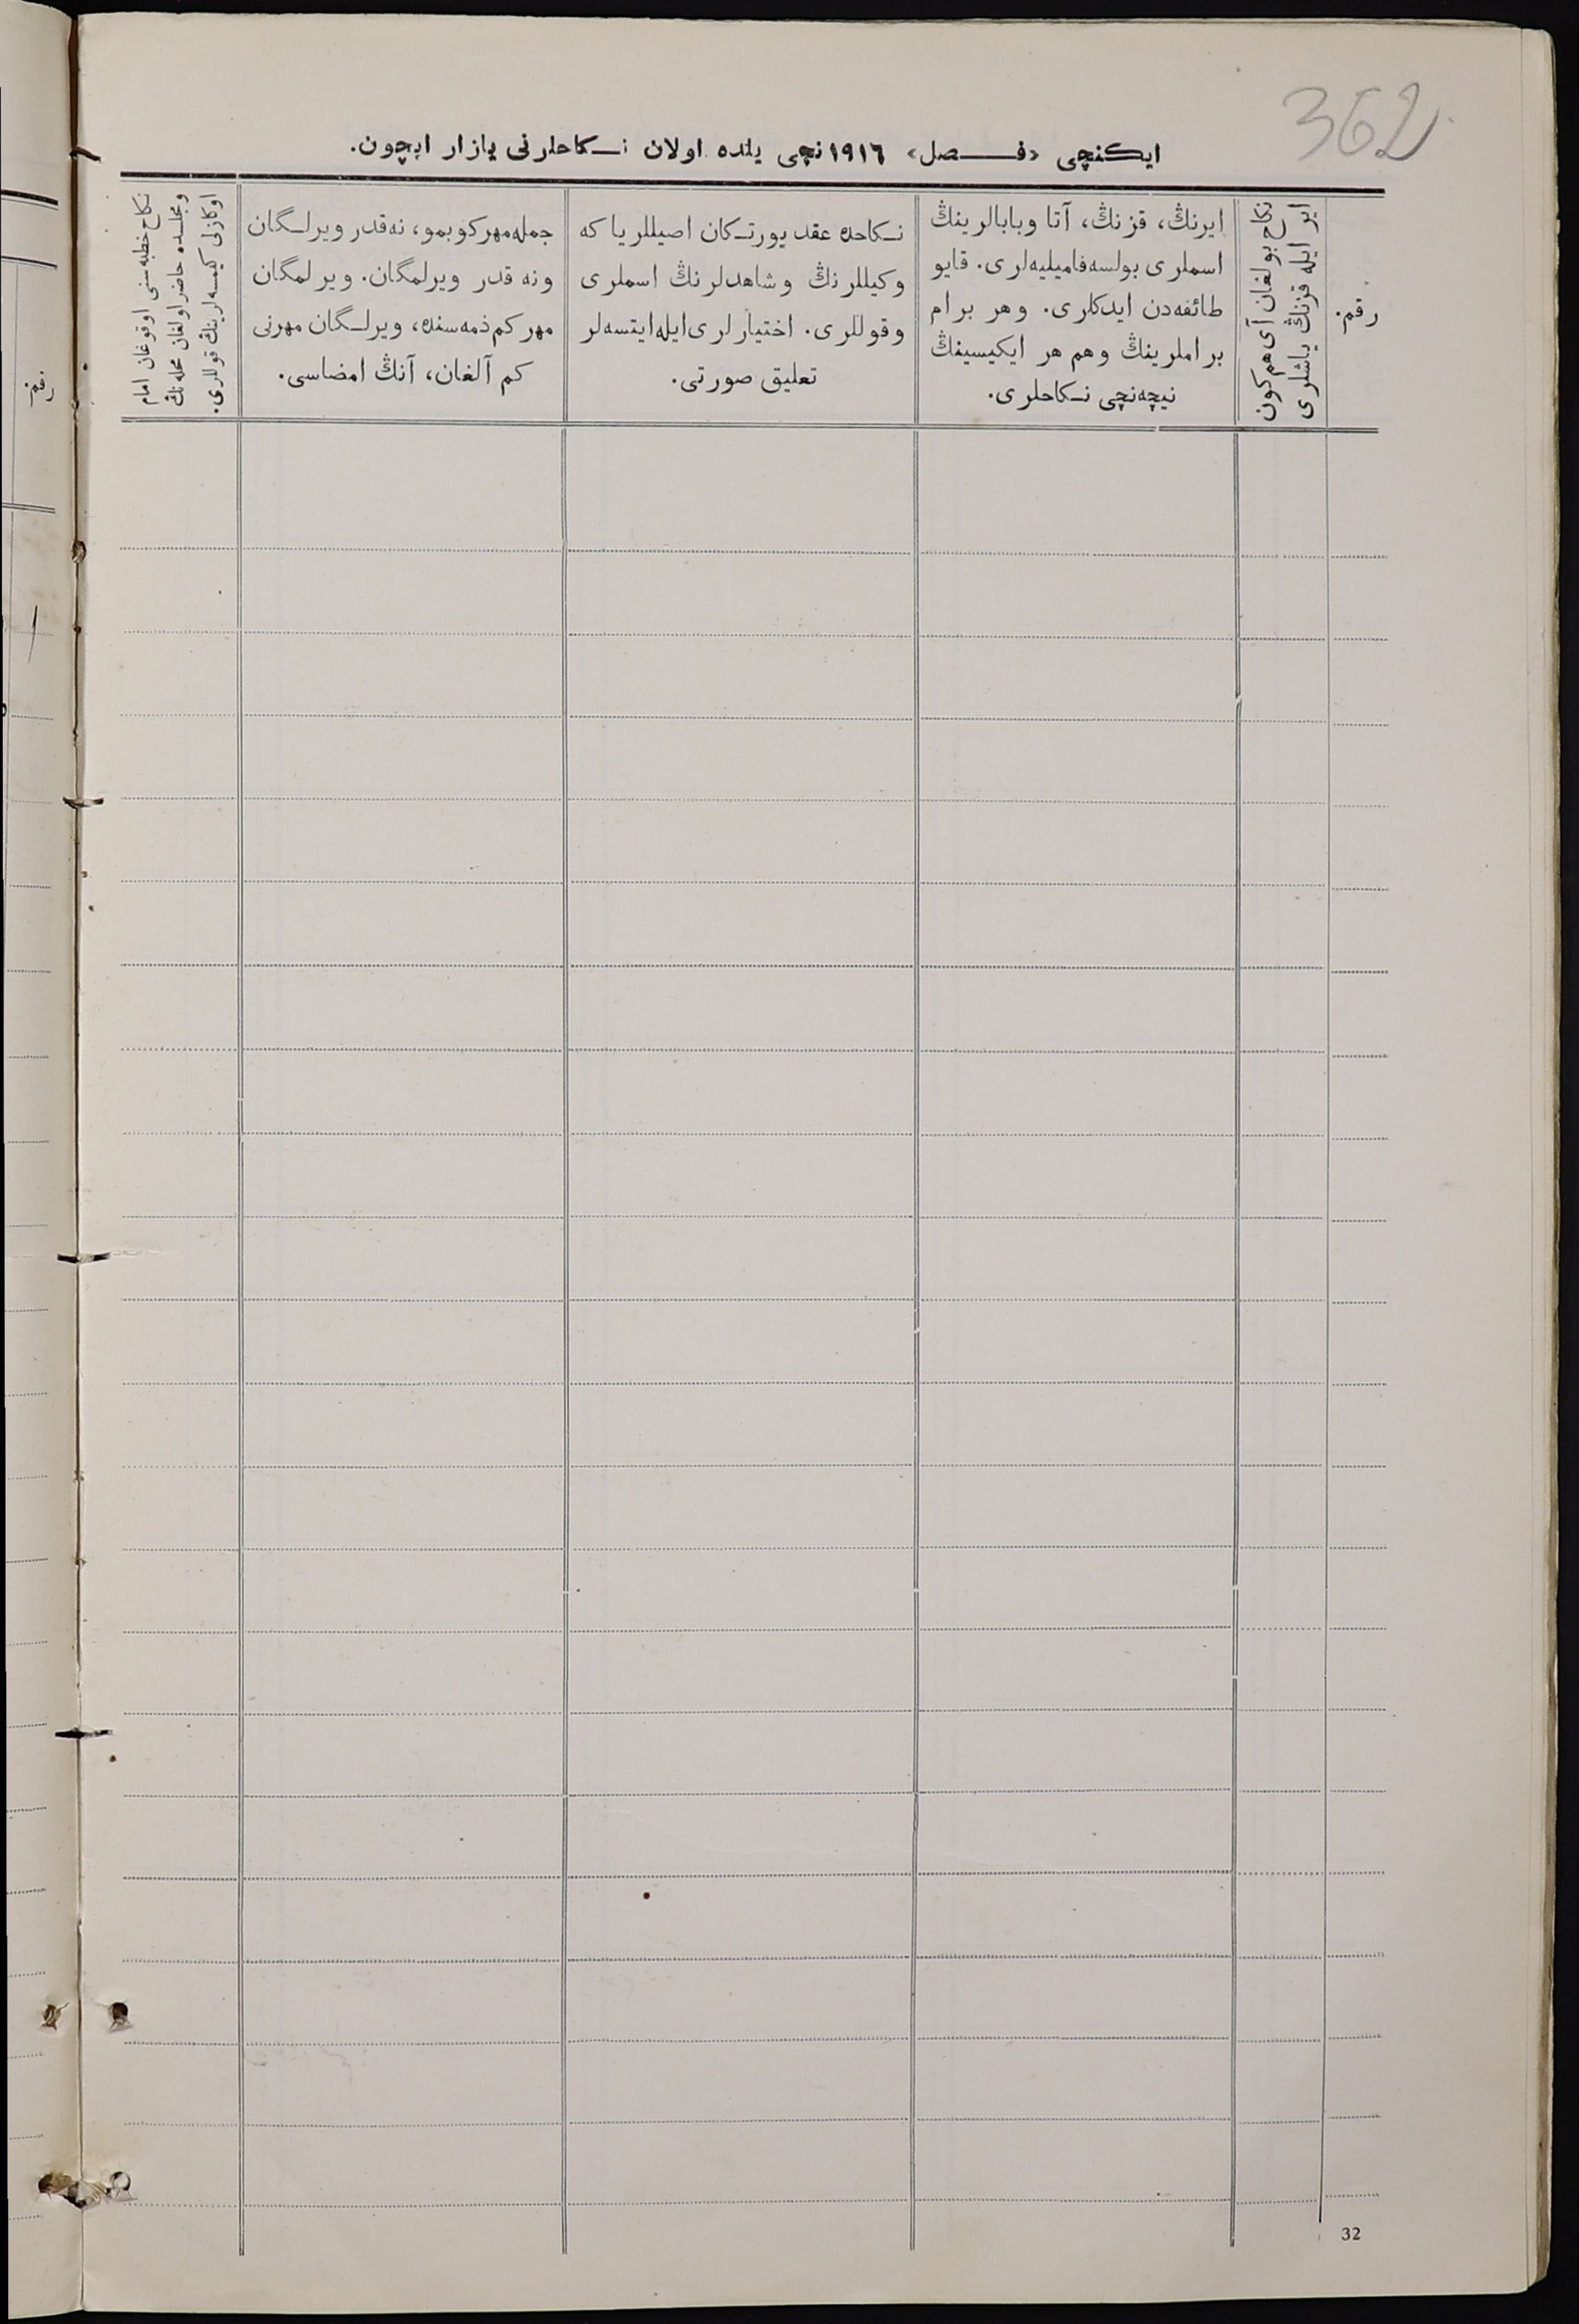 362
ایکنچی «فصل» ١٩١٦ نچی یلده اولان نکاحلرنی یازار ایچون.
رقم.
نکاح بولغان آی هم کون
ایر ایله قزنڭ یاشلری
ایرنڭ، قزنڭ، آتا وبابالرینڭ
اسملری بولسه فامیلیه‌لری. قایو
طائفه‌دن ایدکلری. وهر برام
براملرینڭ وهم هر ایکیسینڭ
نیچه‌نچی نکاحلری.
نکاحده عقد یورتکان اصیللر یا که
وکیللرنڭ وشاهدلرنڭ اسملری
وقوللری. اختیارلری ایله ایتسه‌لر
تعلیق صورتی.
جمله مهر کوبمو، نه‌قدر ویرلگان
ونه قدر ویرلمگان. ویرلمگان
مهر کم ذمه‌سنده، ویرلگان مهرنی
کم آلغان، آنڭ امضاسی.
نکاح خطبه‌سنی اوقوغان امام
ومجلسده حاضر اولغان محله‌نڭ
اوکازنی کیمسه‌لرینڭ قوللری.
رقم.
32